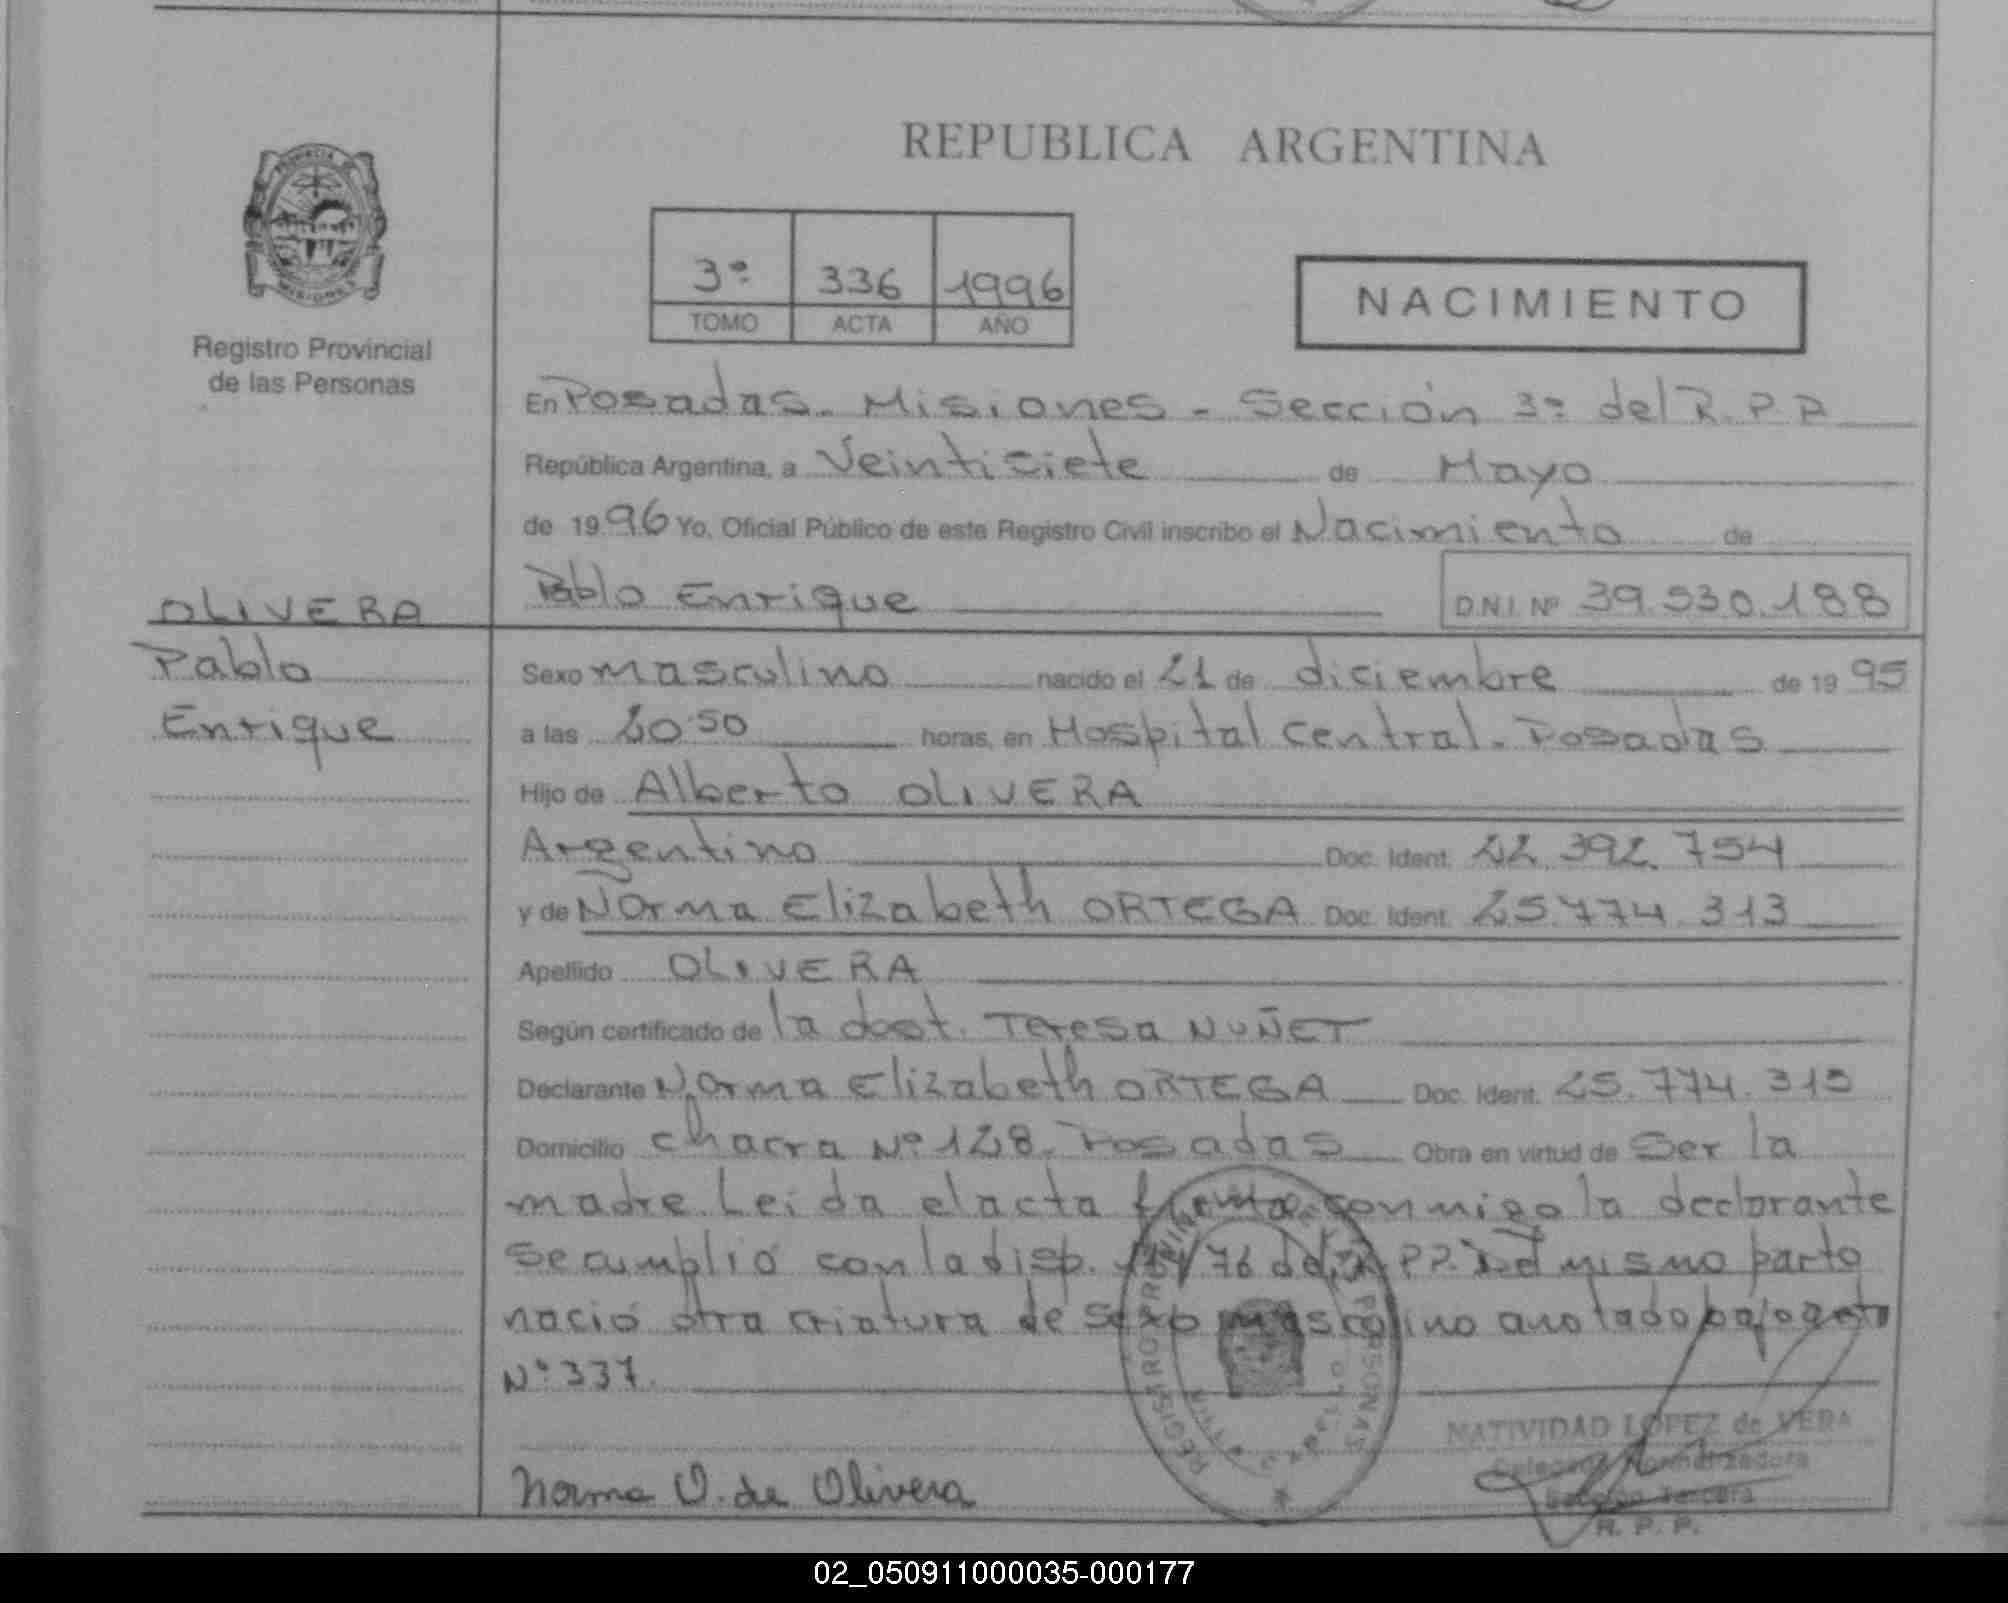 REPUBLICA ARGENTINA
PROVINCIA DE
MISIONES
Registro Provincial
de las Personas
3º 336 1996
TOMO ACTA AÑO
NACIMIENTO
En Posadas. Misiones - Sección 3º del R.P.P
República Argentina, a Veintisiete de Mayo
de 19 96 Yo, Oficial Público de este Registro Civil inscribo el Nacimiento de
Pablo Enrique D.N.I. Nº 39.530.188
OLIVERA
Pablo
Enrique
Sexo masculino nacido el 21 de diciembre de 19 95
a las 20:50 horas, en Hospital Central. Posadas
Hijo de Alberto OLIVERA
Argentino Doc. Ident. 22.392.754
y de Norma Elizabeth ORTEGA Doc. Ident. 25.774.313
Apellido OLIVERA
Según certificado de la dost. Teresa NUÑET
Declarante Norma Elizabeth ORTEGA Doc. Ident. 25.774.313
Domicilio chacra Nº 128. Posadas Obra en virtud de Ser la
madre. Leida el acta firma conmigo la declarante
Se cumplió con la disp. /76 del R.P.P. Del mismo parto
nació otra criatura de sexo masculino anotado bajo acta
Nº 337.
REGISTRO PERSONAS
NATIVIDAD LOPEZ de VERA
Delegada Normalizadora
Sección Tercera
R. P. P.
Norma O. de Olivera
02_050911000035-000177